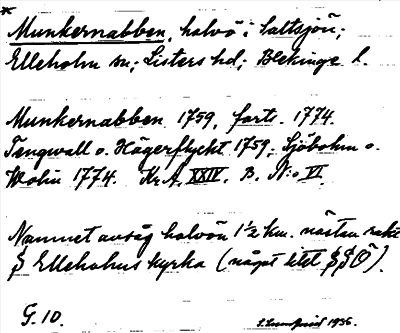 Munkernabben, halvö i Saltsjön;
Elleholm sn; Listers hd; Blekinge l.
Munkernabben 1759, forts. 1774.
Tengwall o. Hägerflycht 1759; Sjöbohm o.
Wolin 1774. Kr.A. XXIV. B. N:o VI.
Namnet avsåg halvön 1½ km. nästan rakt
S Elleholms kyrka (något litet SSO).
G. 10.
1936.